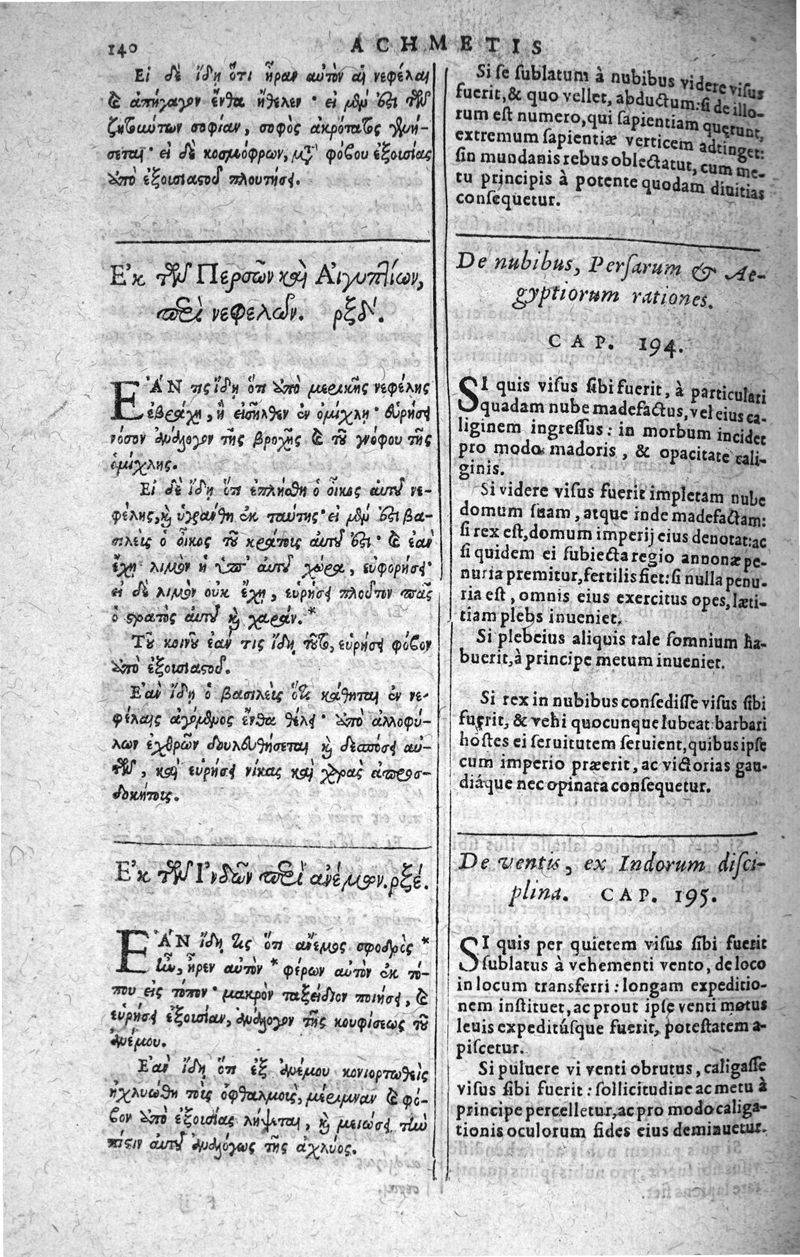 140 ACHMETIS
Εἰ δὲ ἴδῃ ὅτι ἦραν αὐτὸν αἱ νεφέλαι
καὶ ἀπήγαγον ἔνθα ἤθελεν· εἰ μὲν ἔστι τῶν
ζητούντων σοφίαν, σοφὸς ἀκρότατος γενή-
σεται· εἰ δὲ κοσμόφρων, μετὰ φόβου ἐξουσίας
ὑπὸ ἐξουσιαστοῦ πλουτήσει.
Ἐκ τῶν Περσῶν καὶ Αἰγυπτίων,
περὶ νεφελῶν. ρξδʹ.
ΕΑΝ τις ἴδῃ ὅτι ὑπὸ μερικῆς νεφέλης
ἐβράχη, ἢ εἰσῆλθεν ἐν ὁμίχλῃ· εὑρήσει
νόσον ἀνάλογον τῆς βροχῆς καὶ τοῦ γνόφου τῆς
ὁμίχλης.
Εἰ δὲ ἴδῃ ὅτι ἐπλήσθη ὁ οἶκος αὐτοῦ νε-
φέλης, καὶ ὑγράνθη ἐκ ταύτης· εἰ μὲν ἔστι βα-
σιλεὺς ὁ οἶκος τοῦ κράτους αὐτοῦ ἔστι· καὶ ἐὰν
ἔχῃ λιμὸν ἡ ὑπ' αὐτοῦ χώρα, εὐφορήσει·
εἰ δὲ λιμὸν οὐκ ἔχῃ, εὑρήσει πλοῦτον πᾶς
ὁ στρατὸς αὐτοῦ καὶ χαράν.*
Τοῦ κοινοῦ ἐάν τις ἴδῃ τοῦτο, εὑρήσει φόβον
ὑπὸ ἐξουσιαστοῦ.
Ἐὰν ἴδῃ ὁ βασιλεὺς ὅτι κάθηται ἐν νε-
φέλαις ἀγόμενος ἔνθα θέλει· ὑπὸ ἀλλοφύ-
λων ἐχθρῶν δουλευθήσεται καὶ δεσπόσει αὐ-
τῶν, καὶ εὑρήσει νίκας καὶ χαρὰς ἀπροσ-
δοκήτους.
Ἐκ τῶν Ἰνδῶν περὶ ἀνέμων. ρξέ.
ΕΑΝ ἴδῃ τις ὅτι ἄνεμος σφοδρὸς *
ὢν, ἦρεν αὐτὸν * φέρων αὐτὸν ἐκ τό-
που εἰς τόπον· μακρὸν ταξείδιον ποιήσει, καὶ
εὑρήσει ἐξουσίαν, ἀνάλογον τῆς κουφίσεως τοῦ
ἀνέμου.
Ἐὰν ἴδῃ ὅτι ἐξ ἀνέμου κονιορτωθεὶς
ἠχλυώθη τοῖς ὀφθαλμοῖς, μέριμναν καὶ φό-
βον ὑπὸ ἐξουσίας λήψεται, καὶ μειώσει τὴν
πίστιν αὐτοῦ ἀναλόγως τῆς ἀχλύος.
Si ſe ſublatum à nubibus videre viſus
fuerit, & quo vellet, abductum: ſi de illo-
rum eſt numero, qui ſapientiam quærunt,
extremum ſapientiæ verticem adtinget:
ſin mundanis rebus oblectatut, cum me-
tu principis à potente quodam diuitias
conſequetur.
De nubibus, Perſarum & Ae-
gyptiorum rationes.
CAP. 194.
SI quis viſus ſibi fuerit, à particulari
quadam nube madefactus, vel eius ca-
liginem ingreſſus: in morbum incidet
pro modo madoris, & opacitate cali-
ginis.
Si videre viſus fuerit impletam nube
domum ſuam, atque inde madefactam:
ſi rex eſt, domum imperij eius denotat: ac
ſi quidem ei ſubiecta regio annonæ pe-
nuria premitur, fertilis fiet: ſi nulla penu-
ria eſt, omnis eius exercitus opes, læti-
tiam plebs inueniet.
Si plebeius aliquis tale ſomnium ha-
buerit, à principe metum inueniet.
Si rex in nubibus conſediſſe viſus ſibi
fuerit, & vehi quocunque lubeat barbari
hoſtes ei ſeruitutem ſeruient, quibus ipſe
cum imperio præerit, ac victorias gau-
diáque nec opinata conſequetur.
De ventis, ex Indorum diſci-
plina. CAP. 195.
SI quis per quietem viſus ſibi fuerit
ſublatus à vehementi vento, de loco
in locum transferri: longam expeditio-
nem inſtituet, ac prout ipſe venti motus
leuis expeditúſque fuerit, poteſtatem a-
piſcetur.
Si puluere vi venti obrutus, caligaſſe
viſus ſibi fuerit: ſollicitudine ac metu à
principe percelletur, ac pro modo caliga-
tionis oculorum fides eius deminuetur.